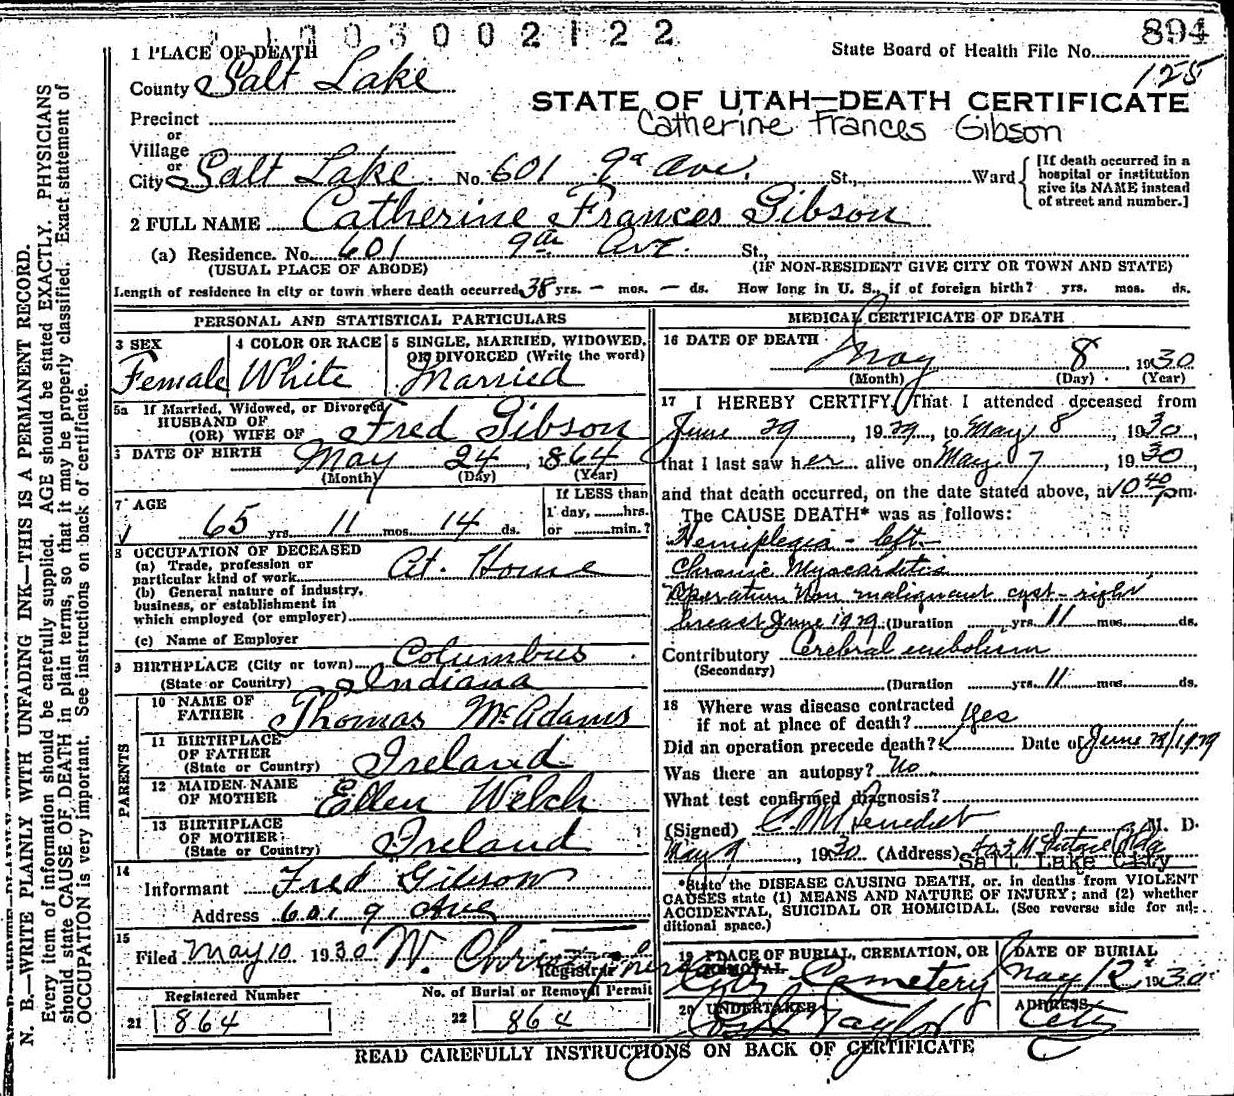 1 1 0 3 0 0 2 1 2 2
894
1 PLACE OF DEATH
State Board of Health File No.
125
County Salt Lake
STATE OF UTAH—DEATH CERTIFICATE
Precinct
Catherine Frances Gibson
or
Village
or
City Salt Lake No. 601 9th Ave. St., Ward
[If death occurred in a
hospital or institution
give its NAME instead
of street and number.]
2 FULL NAME Catherine Frances Gibson
(a) Residence. No. 601 9th Ave. St.,
(USUAL PLACE OF ABODE) (IF NON-RESIDENT GIVE CITY OR TOWN AND STATE)
Length of residence in city or town where death occurred 38 yrs. — mos. — ds. How long in U. S., if of foreign birth? yrs. mos. ds.
PERSONAL AND STATISTICAL PARTICULARS
3 SEX
Female
4 COLOR OR RACE
White
5 SINGLE, MARRIED, WIDOWED,
OR DIVORCED (Write the word)
Married
5a If Married, Widowed, or Divorced
HUSBAND OF
(OR) WIFE OF Fred Gibson
6 DATE OF BIRTH May 24, 1864
(Month) (Day) (Year)
7 AGE
65 yrs. 11 mos. 14 ds.
If LESS than
1 day, hrs.
or min.?
8 OCCUPATION OF DECEASED
(a) Trade, profession or
particular kind of work At Home
(b) General nature of industry,
business, or establishment in
which employed (or employer)
(c) Name of Employer
9 BIRTHPLACE (City or town) Columbus
(State or Country) Indiana
PARENTS
10 NAME OF
FATHER Thomas McAdams
11 BIRTHPLACE
OF FATHER
(State or Country) Ireland
12 MAIDEN NAME
OF MOTHER Ellen Welch
13 BIRTHPLACE
OF MOTHER
(State or Country) Ireland
14
Informant Fred Gibson
Address 601 9 Ave
15
Filed May 10 1930 W.
Registrar
Registered Number
21 864
No. of Burial or Removal Permit
22 864
MEDICAL CERTIFICATE OF DEATH
16 DATE OF DEATH
May 8 1930
(Month) (Day) (Year)
17 I HEREBY CERTIFY, That I attended deceased from
June 29, 1929, to May 8, 1930,
that I last saw her alive on May 7, 1930
and that death occurred, on the date stated above, at 10 40 pm.
The CAUSE DEATH* was as follows:
Hemiplegia - left -
Chronic Myocarditis
Operation Non malignant cyst - right
breast June 1929 (Duration yrs. 11 mos. ds.
Contributory Cerebral embolism
(Secondary)
(Duration yrs. 11 mos. ds.
18 Where was disease contracted
if not at place of death? yes
Did an operation precede death? Date of June 29/1929
Was there an autopsy? No
What test confirmed diagnosis?
(Signed) C. M. Benedict M. D.
May 9, 1930 (Address)
Salt Lake City
*State the DISEASE CAUSING DEATH, or, in deaths from VIOLENT
CAUSES state (1) MEANS AND NATURE OF INJURY; and (2) whether
ACCIDENTAL, SUICIDAL OR HOMICIDAL. (See reverse side for additional space.)
19 PLACE OF BURIAL, CREMATION, OR
REMOVAL
City Cemetery
DATE OF BURIAL
May 12 1930
20 UNDERTAKER
Taylor
ADDRESS
City
READ CAREFULLY INSTRUCTIONS ON BACK OF CERTIFICATE
N. B.—WRITE PLAINLY WITH UNFADING INK—THIS IS A PERMANENT RECORD.
Every item of information should be carefully supplied. AGE should be stated EXACTLY. PHYSICIANS
should state CAUSE OF DEATH in plain terms, so that it may be properly classified. Exact statement of
OCCUPATION is very important. See instructions on back of certificate.